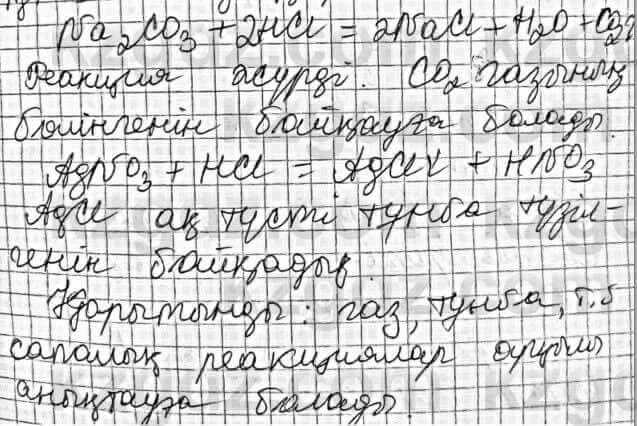 Na₂CO₃ + 2HCl = 2NaCl + H₂O + CO₂↑
Реакция жүрді. CO₂ газының
бөлінгенін байқауға болады.
AgNO₃ + HCl = AgCl↓ + HNO₃
AgCl ақ түсті тұнба түзіл-
генін байқадық.
Қорытынды: газ, тұнба, т.б
сапалық реакциялар арқылы
анықтауға болады.